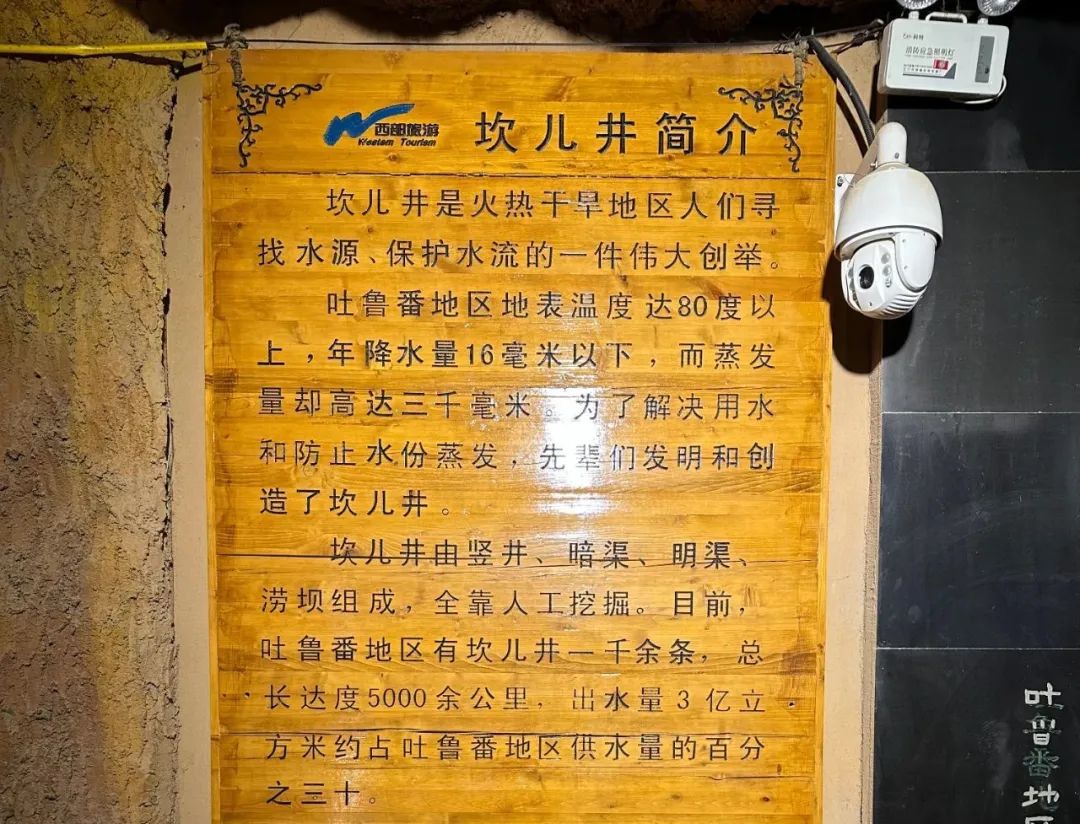 西部旅游
Western Tourism
坎儿井简介
坎儿井是火热干旱地区人们寻
找水源、保护水流的一件伟大创举。
吐鲁番地区地表温度达80度以
上，年降水量16毫米以下，而蒸发
量却高达三千毫米。为了解决用水
和防止水份蒸发，先辈们发明和创
造了坎儿井。
坎儿井由竖井、暗渠、明渠、
涝坝组成，全靠人工挖掘。目前，
吐鲁番地区有坎儿井一千余条，总
长达度5000余公里，出水量3亿立
方米约占吐鲁番地区供水量的百分
之三十。
消防应急照明灯
吐鲁番地